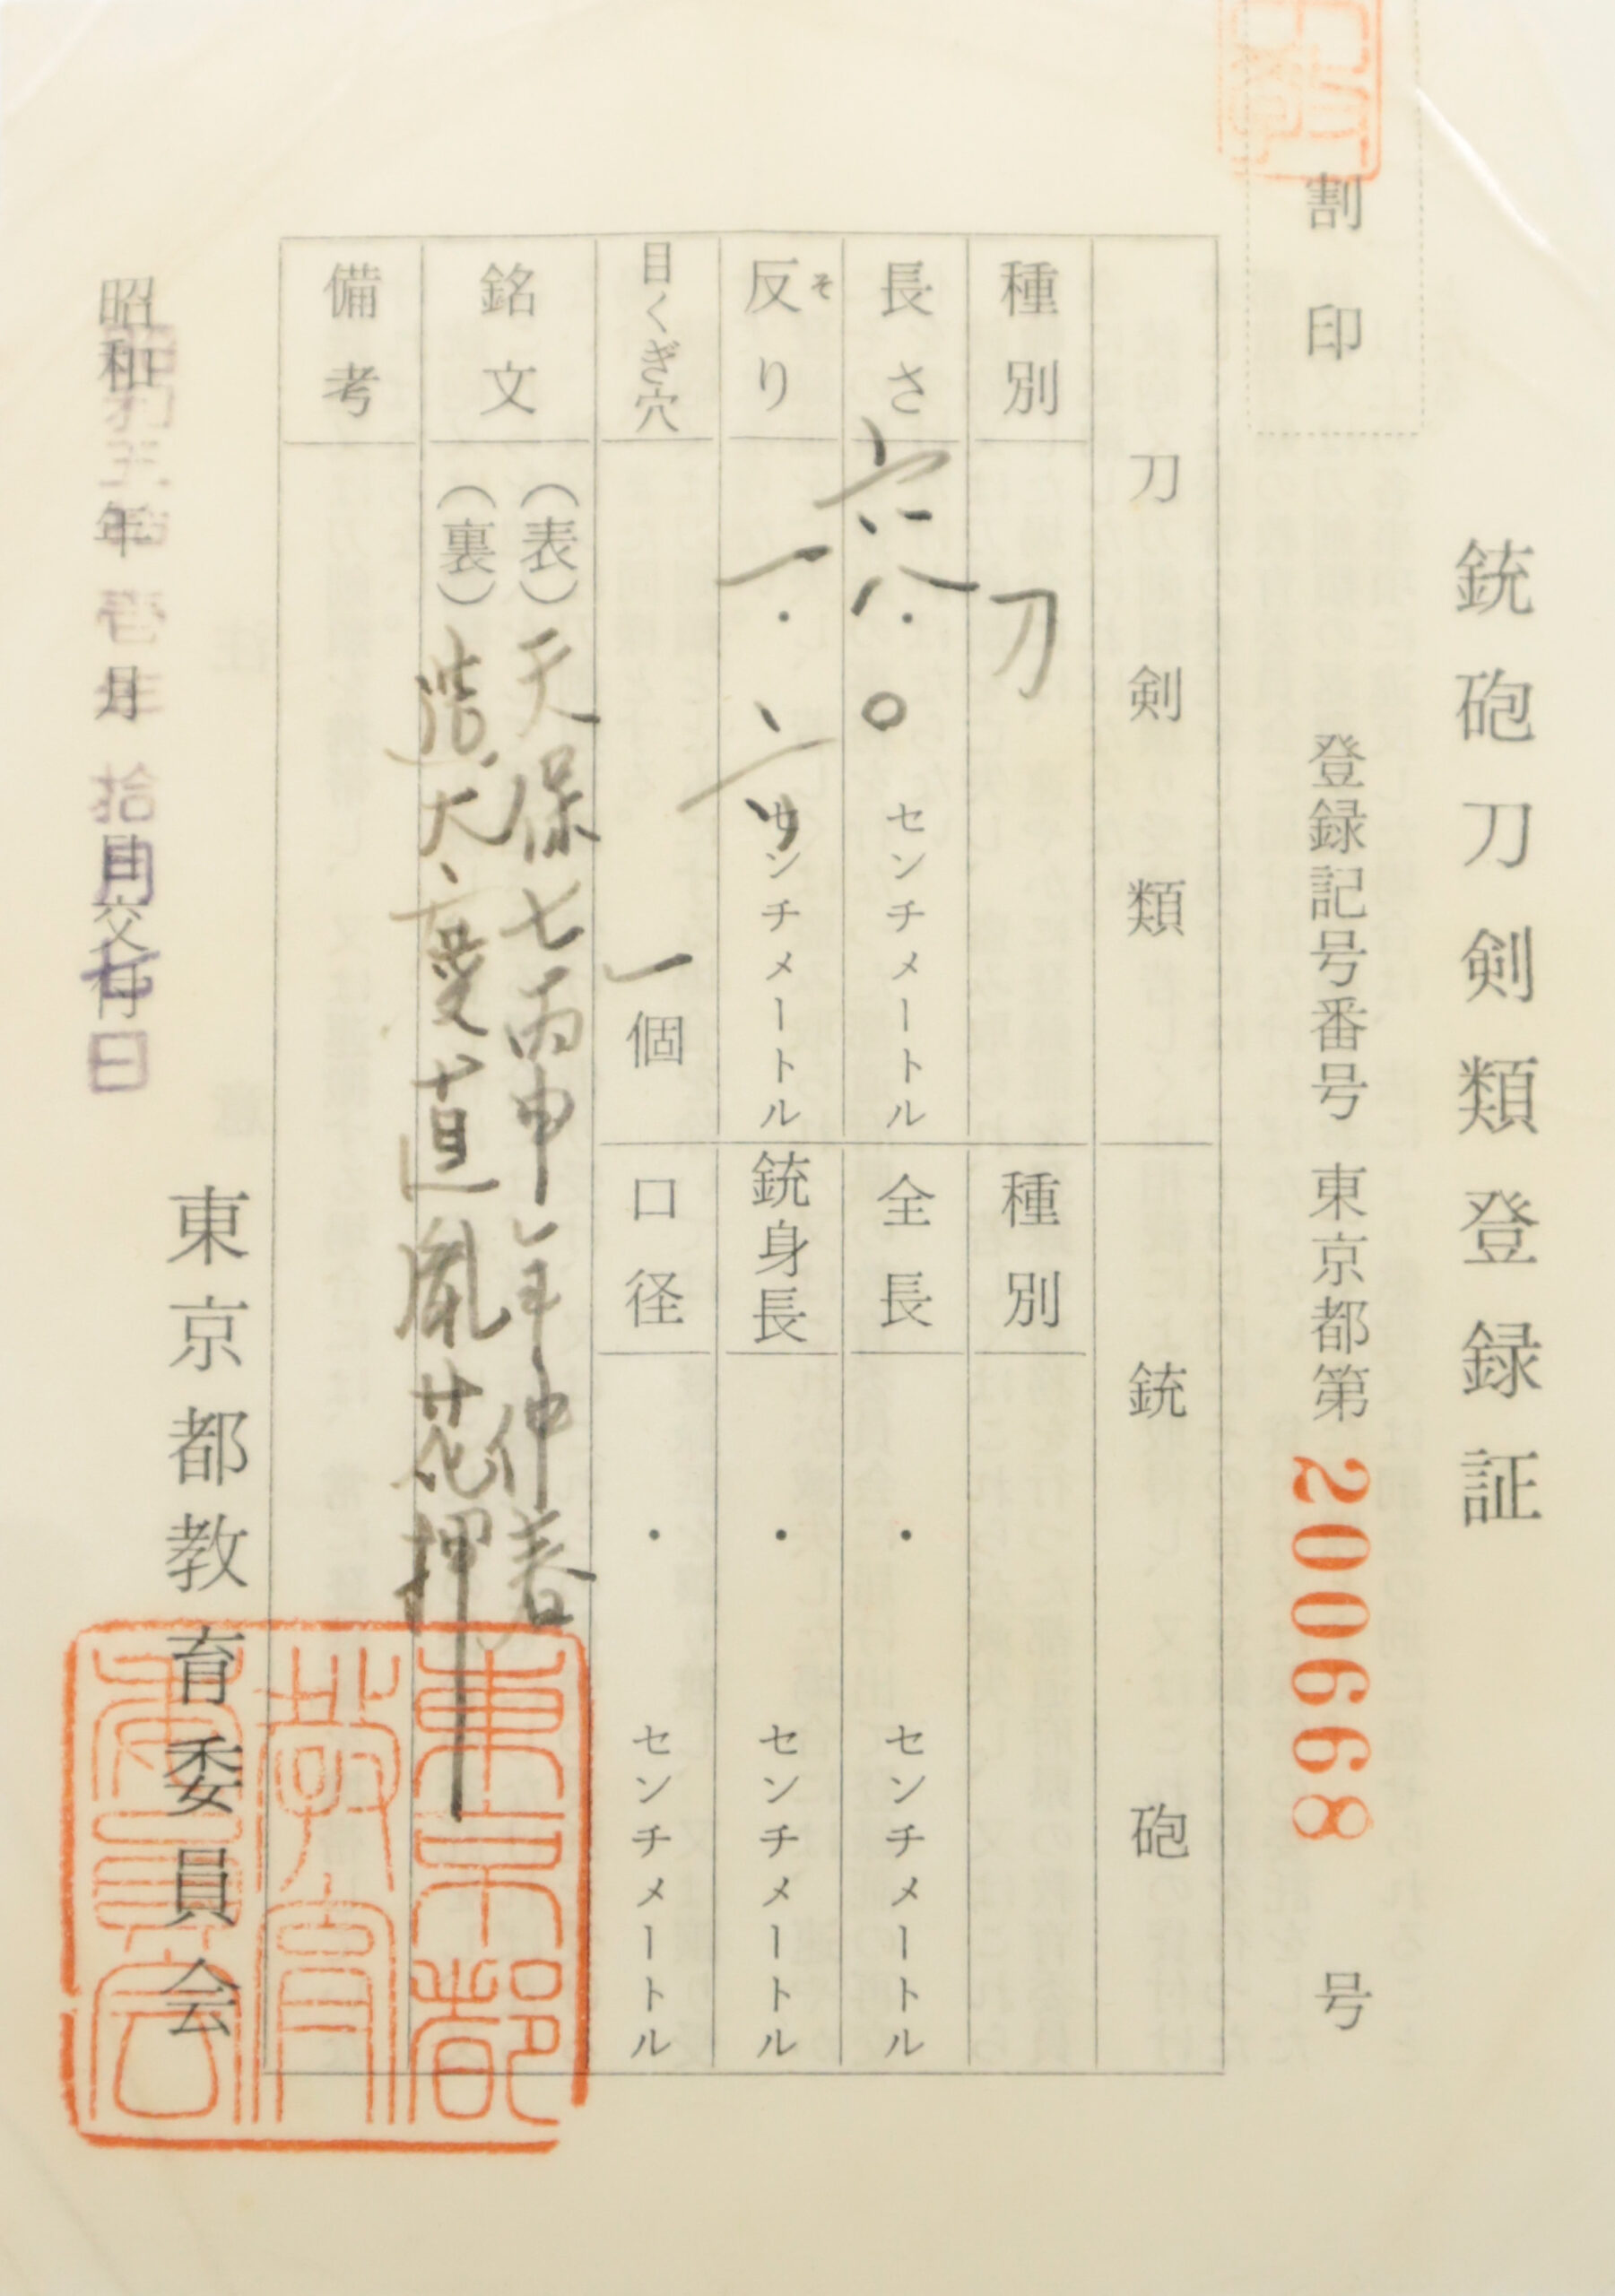 銃砲刀剣類登録証
割印
登録記号番号 東京都第200668号
刀剣類 銃砲
種別 刀 種別
長さ 六八・〇センチメートル 全長 ・センチメートル
反り 一・六センチメートル 銃身長 ・センチメートル
そ
目くぎ穴 一個 口径 ・センチメートル
銘文 (表)天保七丙申年仲春
(裏)造大慶直胤花押
備考
昭和 年 月 日交付
昭和五拾壱年拾月七日
東京都教育委員会
東京都教育委員会